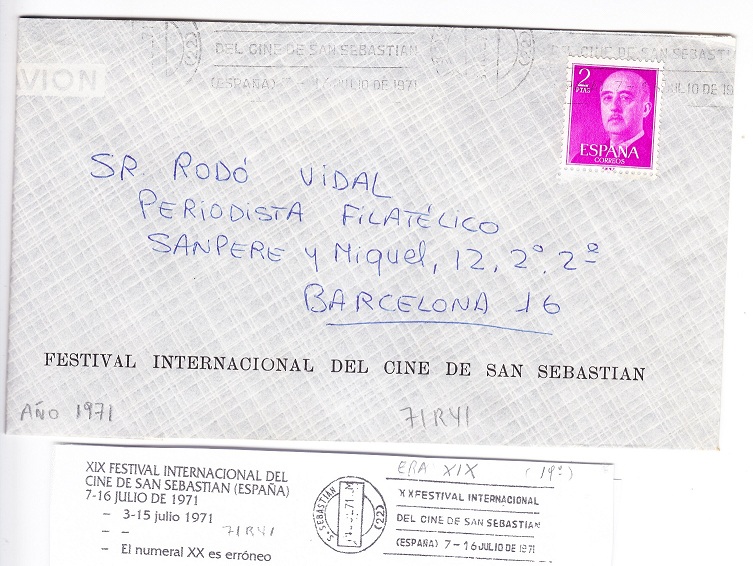 DEL CINE DE SAN SEBASTIAN
DEL CINE DE SAN SEBASTI
AVION
(ESPAÑA) 7- JULIO DE 1971
7- JULIO DE 19
2
PTAS
ESPAÑA
CORREOS
SR. RODÓ VIDAL
PERIODISTA FILATÉLICO
SANPERE y Miquel, 12, 2º, 2ª
BARCELONA 16
FESTIVAL INTERNACIONAL DEL CINE DE SAN SEBASTIAN
AÑO 1971
71RY1
XIX FESTIVAL INTERNACIONAL DEL
CINE DE SAN SEBASTIAN (ESPAÑA)
7-16 JULIO DE 1971
– 3-15 julio 1971
– –
71RY1
– El numeral XX es erróneo
S. SEBASTIAN
(22)
ERA XIX (19º)
XXFESTIVAL INTERNACIONAL
DEL CINE DE SAN SEBASTIAN
(ESPAÑA) 7-16 JULIO DE 1971